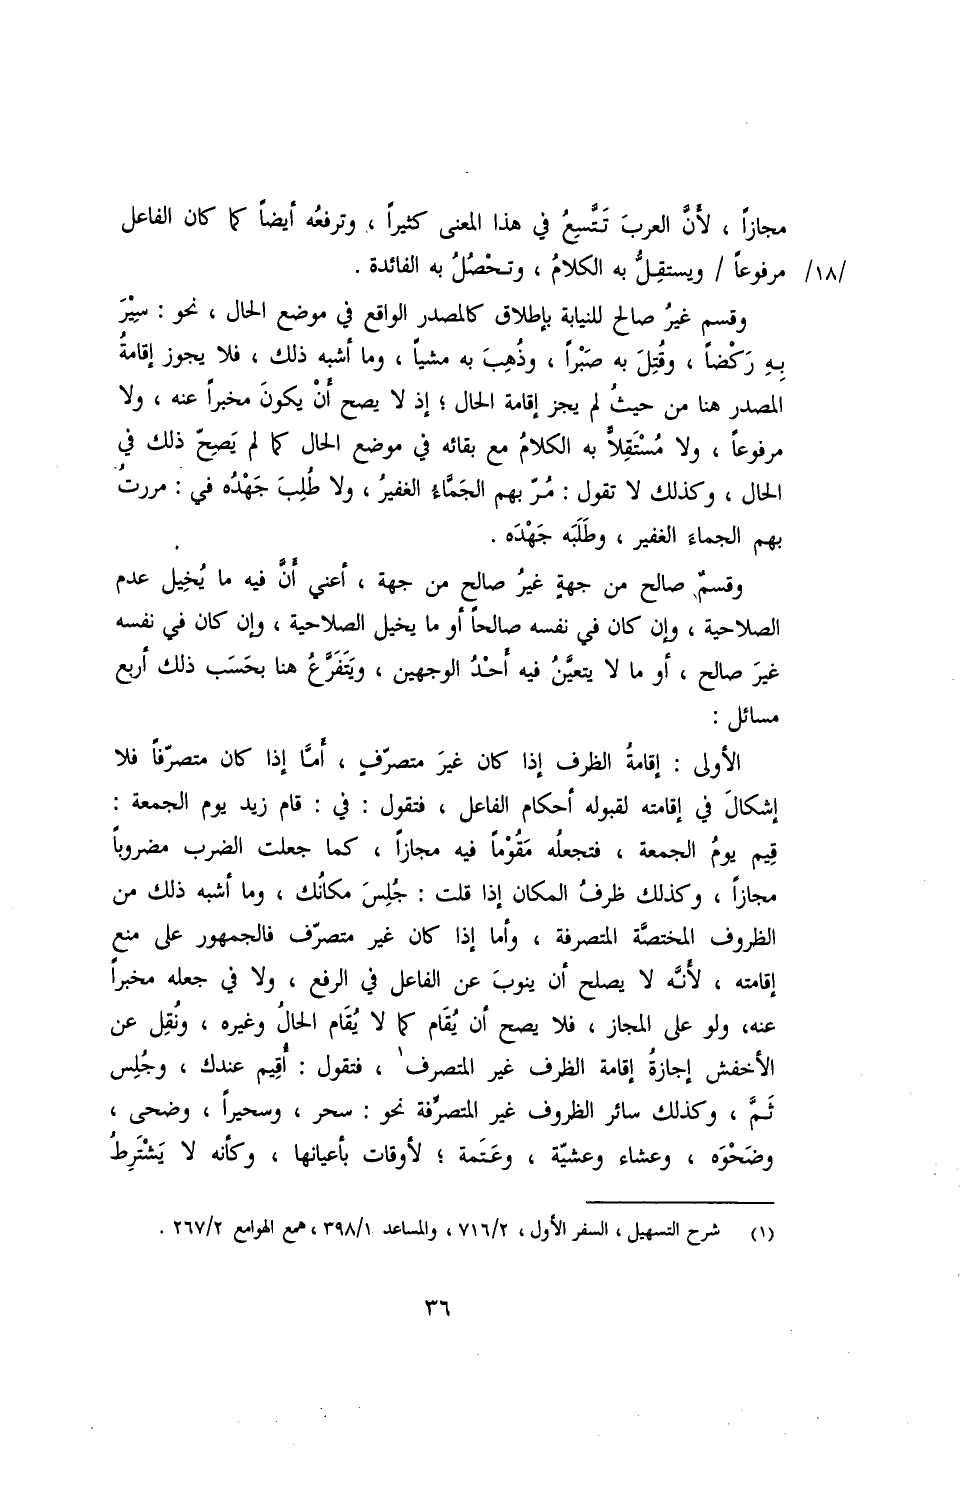 مجازاً ، لأَنَّ العربَ تَـتَّسِعُ في هذا المعنى كثيراً ، وترفعُه أيضاً كما كان الفاعل
/١٨/ مرفوعاً / ويستقِـلُّ به الكلامُ ، وتـحْصُلُ به الفائدة .
وقسم غيرُ صالح للنيابة بإطلاق كالمصدر الواقع في موضع الحال ، نحو : سِيْرَ
بِـهِ رَكْضاً ، وقُتِلَ به صَبْراً ، وذُهِبَ به مشياً ، وما أشبه ذلك ، فلا يجوز إقامةُ
المصدر هنا من حيثُ لم يجز إقامة الحال ؛ إذ لا يصح أَنْ يكونَ مخبراً عنه ، ولا
مرفوعاً ، ولا مُسْتَقِلاًّ به الكلامُ مع بقائه في موضع الحال كما لم يَصِحّ ذلك في
الحال ، وكذلك لا تقول : مُـرّ بهم الجَمَّاءُ الغفيرُ ، ولا طُلِبَ جَهْدُه في : مررتُ
بهم الجماءَ الغفير ، وطَلَبَه جَهْدَه .
وقسمٌ صالح من جهةٍ غيرُ صالح من جهة ، أعني أَنَّ فيه ما يُخِيل عدم
الصلاحية ، وإن كان في نفسه صالحاً أو ما يخيل الصلاحية ، وإن كان في نفسه
غيرَ صالح ، أو ما لا يتعيَّنُ فيه أَحْدُ الوجهين ، ويَتَفَرَّعُ هنا بحَسَب ذلك أربع
مسائل :
الأولى : إقامةُ الظرف إذا كان غيرَ متصرّفٍ ، أَمـَّا إذا كان متصرّفاً فلا
إشكالَ في إقامته لقبوله أحكام الفاعل ، فتقول : في : قام زيد يوم الجمعة :
قِيم يومُ الجمعة ، فتجعلُه مَقُوْماً فيه مجازاً ، كما جعلت الضرب مضروباً
مجازاً ، وكذلك ظرفُ المكان إذا قلت : جُلِسَ مكانُك ، وما أشبه ذلك من
الظروف المختصَّة المتصرفة ، وأما إذا كان غير متصرّف فالجمهور على منع
إقامته ، لأَنـَّه لا يصلح أن ينوبَ عن الفاعل في الرفع ، ولا في جعله مخبراً
عنه، ولو على المجاز ، فلا يصح أن يُقَام كما لا يُقَام الحالُ وغيره ، ونُقِل عن
الأخفش إجازةُ إقامة الظرف غير المتصرف١ ، فتقول : أُقِيم عندك ، وجُلِس
ثَـمَّ ، وكذلك سائر الظروف غير المتصرِّفة نحو : سحر ، وسحيراً ، وضحى ،
وضَحْوَه ، وعشاء وعشيّة ، وعَتَمة ؛ لأوقات بأعيانها ، وكأنه لا يَشْتَرِطُ
(١) شرح التسهيل ، السفر الأول ، ٧١٦/٢ ، والمساعد ٣٩٨/١ ، همع الهوامع ٢٦٧/٢ .
٣٦